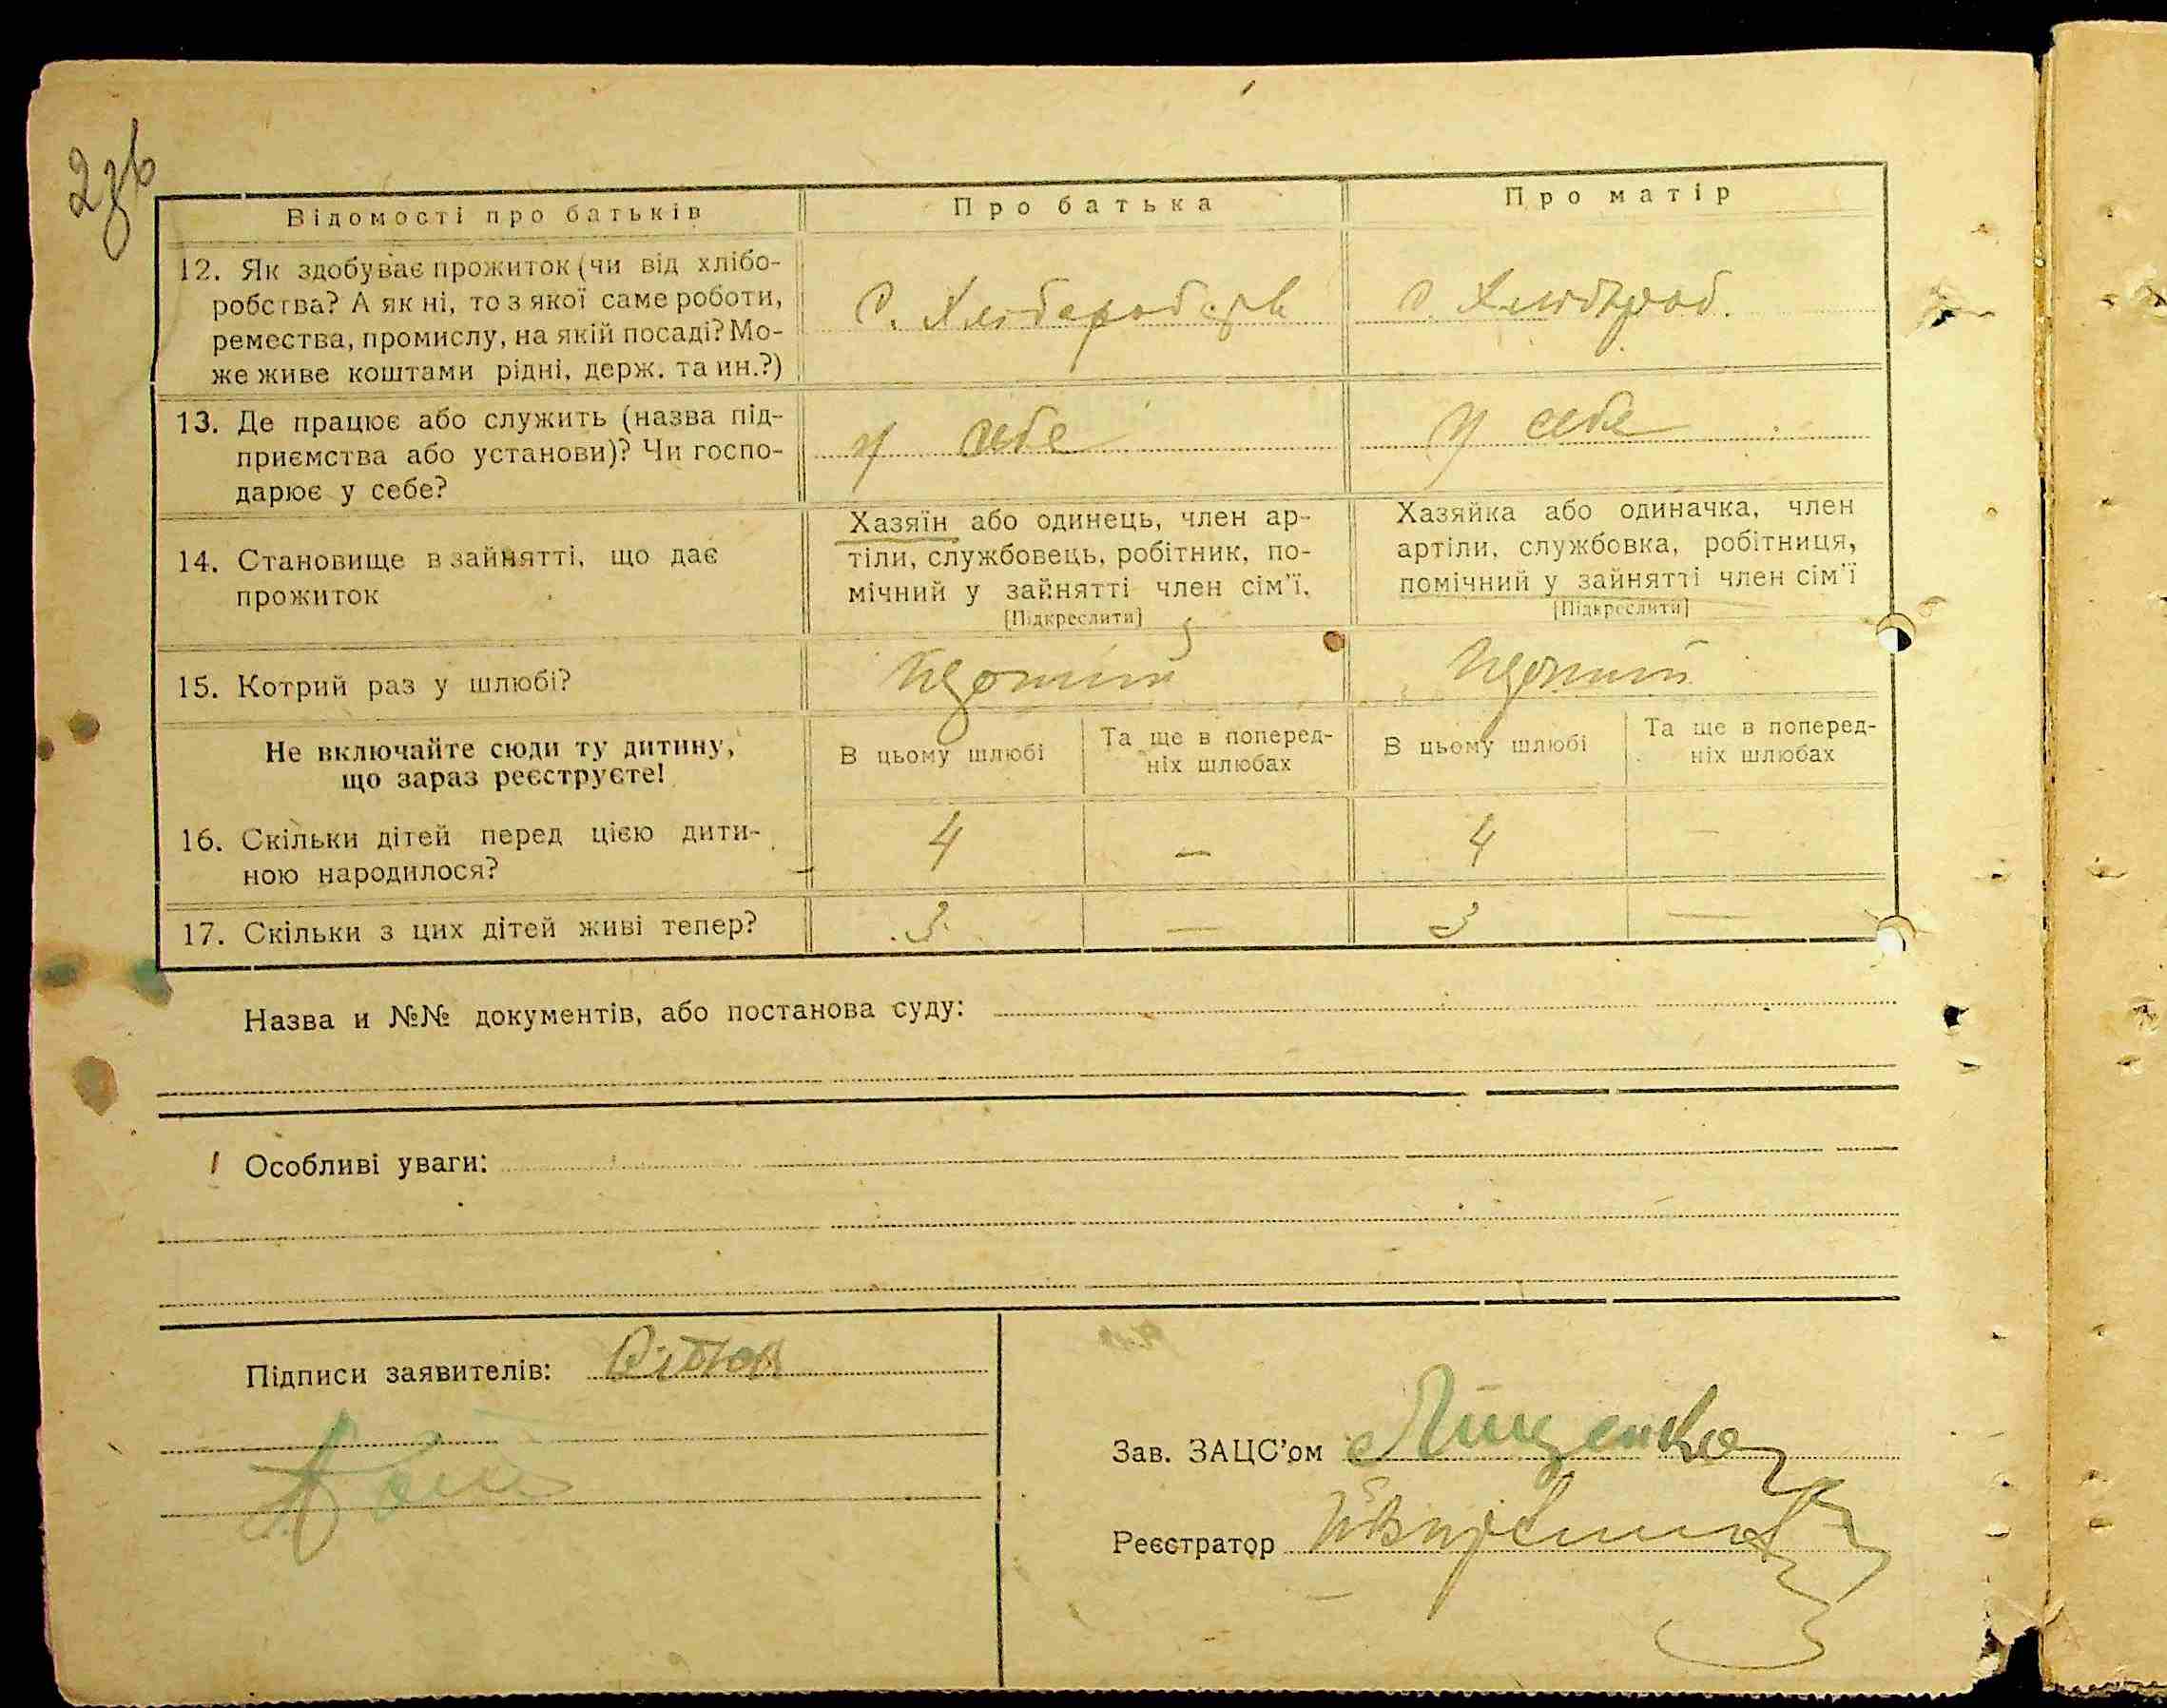 2зв
Відомості про батьків
Про батька
Про матір
12. Як здобуває прожиток (чи від хлібо-
робства? А як ні, то з якої саме роботи,
ремества, промислу, на якій посаді? Мо-
же живе коштами рідні, держ. та ин.?)
13. Де працює або служить (назва під-
приємства або установи)? Чи госпо-
дарює у себе?
у себе
у себе
14. Становище в зайнятті, що дає
прожиток
Хазяїн або одинець, член ар-
тіли, службовець, робітник, по-
мічний у зайнятті член сім'ї.
[Підкреслити]
Хазяйка або одиначка, член
артіли, службовка, робітниця,
помічний у зайнятті член сім'ї
[Підкреслити]
15. Котрий раз у шлюбі?
Не включайте сюди ту дитину,
що зараз реєструєте!
В цьому шлюбі
Та ще в поперед-
ніх шлюбах
В цьому шлюбі
Та ще в поперед-
ніх шлюбах
16. Скільки дітей перед цією дити-
ною народилося?
4 — 4 —
17. Скільки з цих дітей живі тепер?
3 — 3 —
Назва и №№ документів, або постанова суду:
Особливі уваги:
Підписи заявителів:
Зав. ЗАЦС'ом
Реєстратор